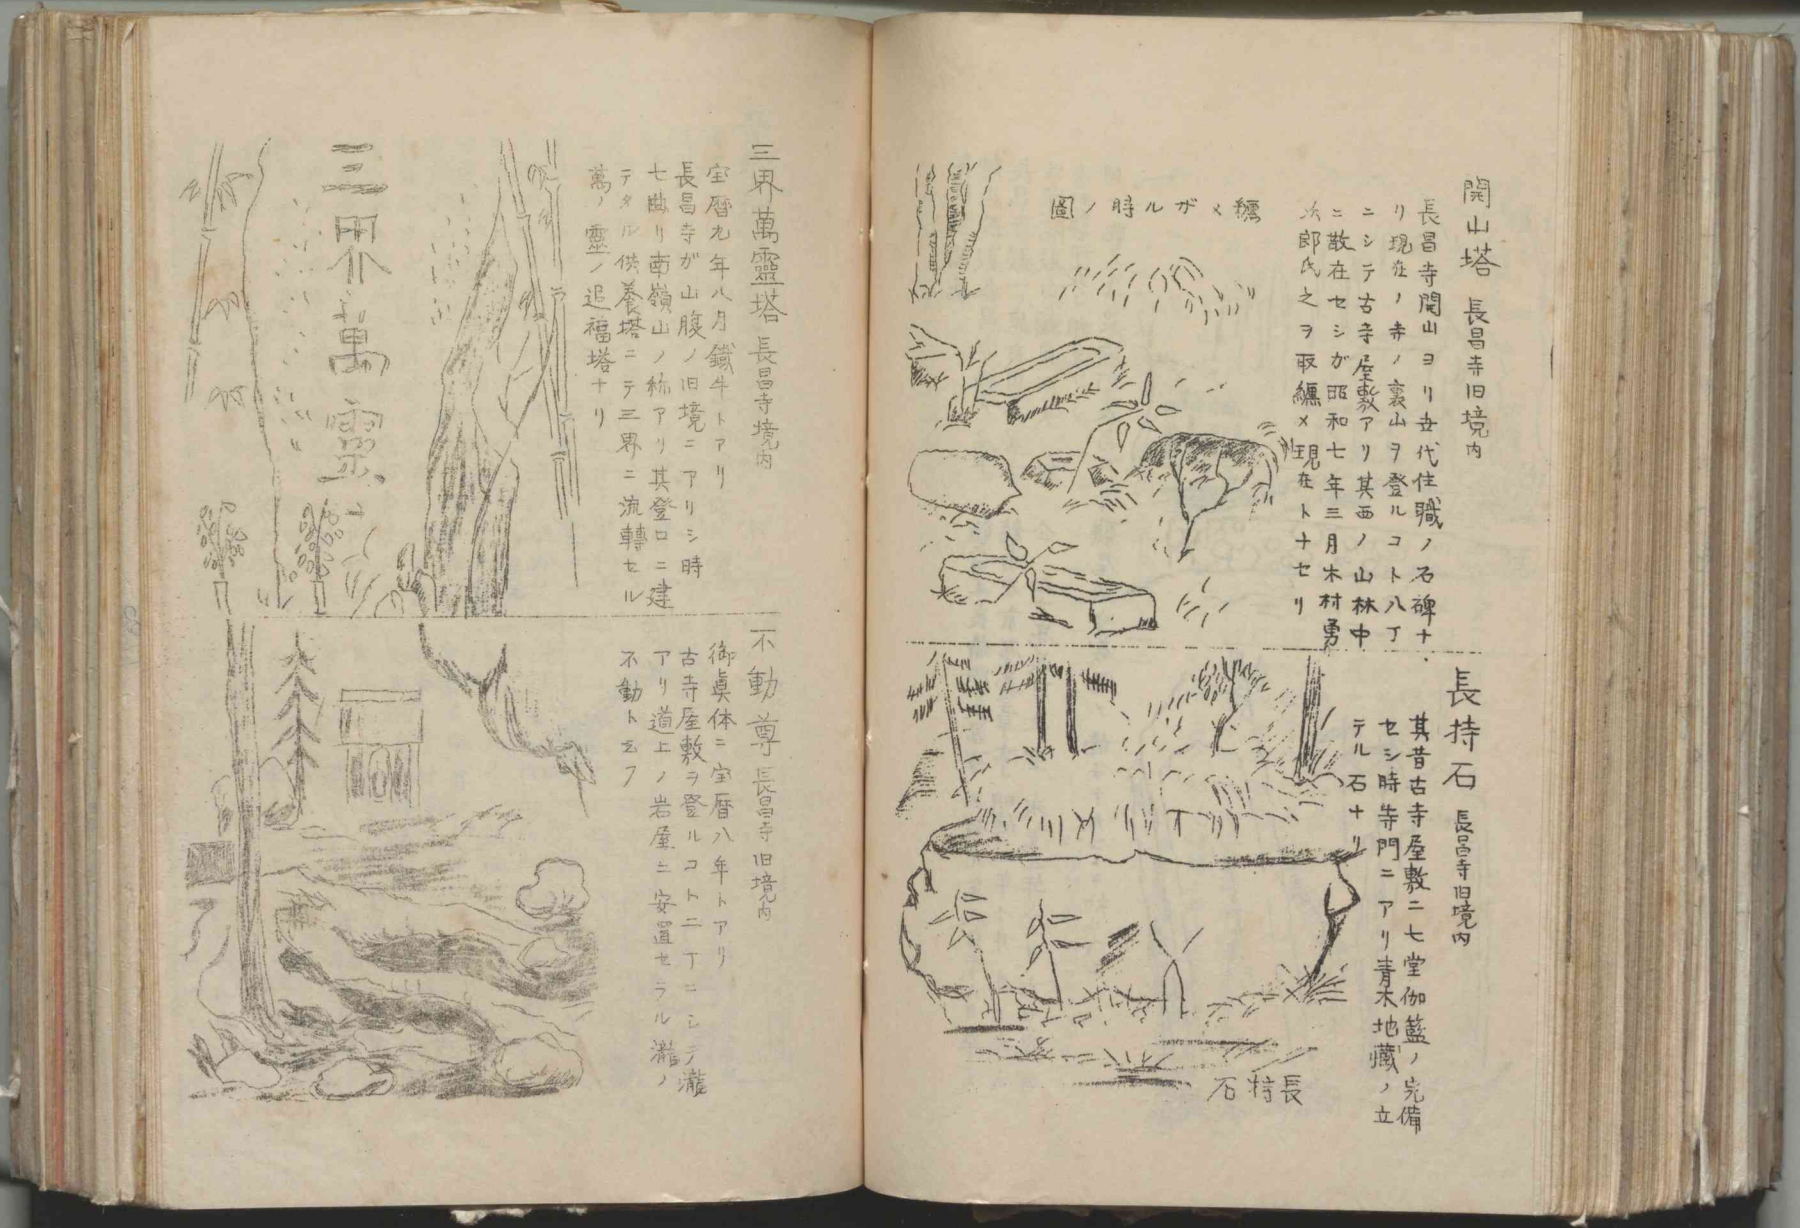 開山塔 長昌寺旧境内
長昌寺開山ヨリ五代住職ノ石碑ナ
リ現在ノ寺ノ裏山ヲ登ルコト八丁
ニシテ古寺屋敷アリ其西ノ山林中
ニ散在セシガ昭和七年三月木村勇
次郎氏之ヲ取纒メ現在トナセリ
纒メガル時ノ圖
長持石 長昌寺旧境内
其昔古寺屋敷ニ七堂伽藍ノ完備
セシ時寺門ニアリ青木地藏ノ立
テル石ナリ
長持石
三界萬靈塔 長昌寺境内
宝暦九年八月鐵牛トアリ
長昌寺が山腹ノ旧境ニアリシ時
七曲リ南嶺山ノ称アリ其登口ニ建
テタル供養塔ニテ三界ニ流轉セル
萬ノ靈ノ追福塔ナリ
三界萬靈
不動尊 長昌寺旧境内
御眞体ニ宝暦八年トアリ
古寺屋敷ヲ登ルコト二丁ニシテ瀧
アリ道上ノ岩屋ニ安置セラル瀧ノ
不動ト云フ